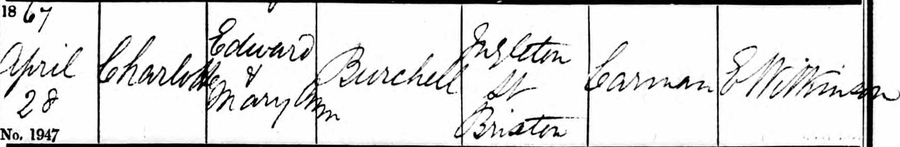 1867
April
28
No. 1947
Charlotte
Edward
&
Mary Ann
Burchell
Ingleton
St
Brixton
Carman
E Wilkinson